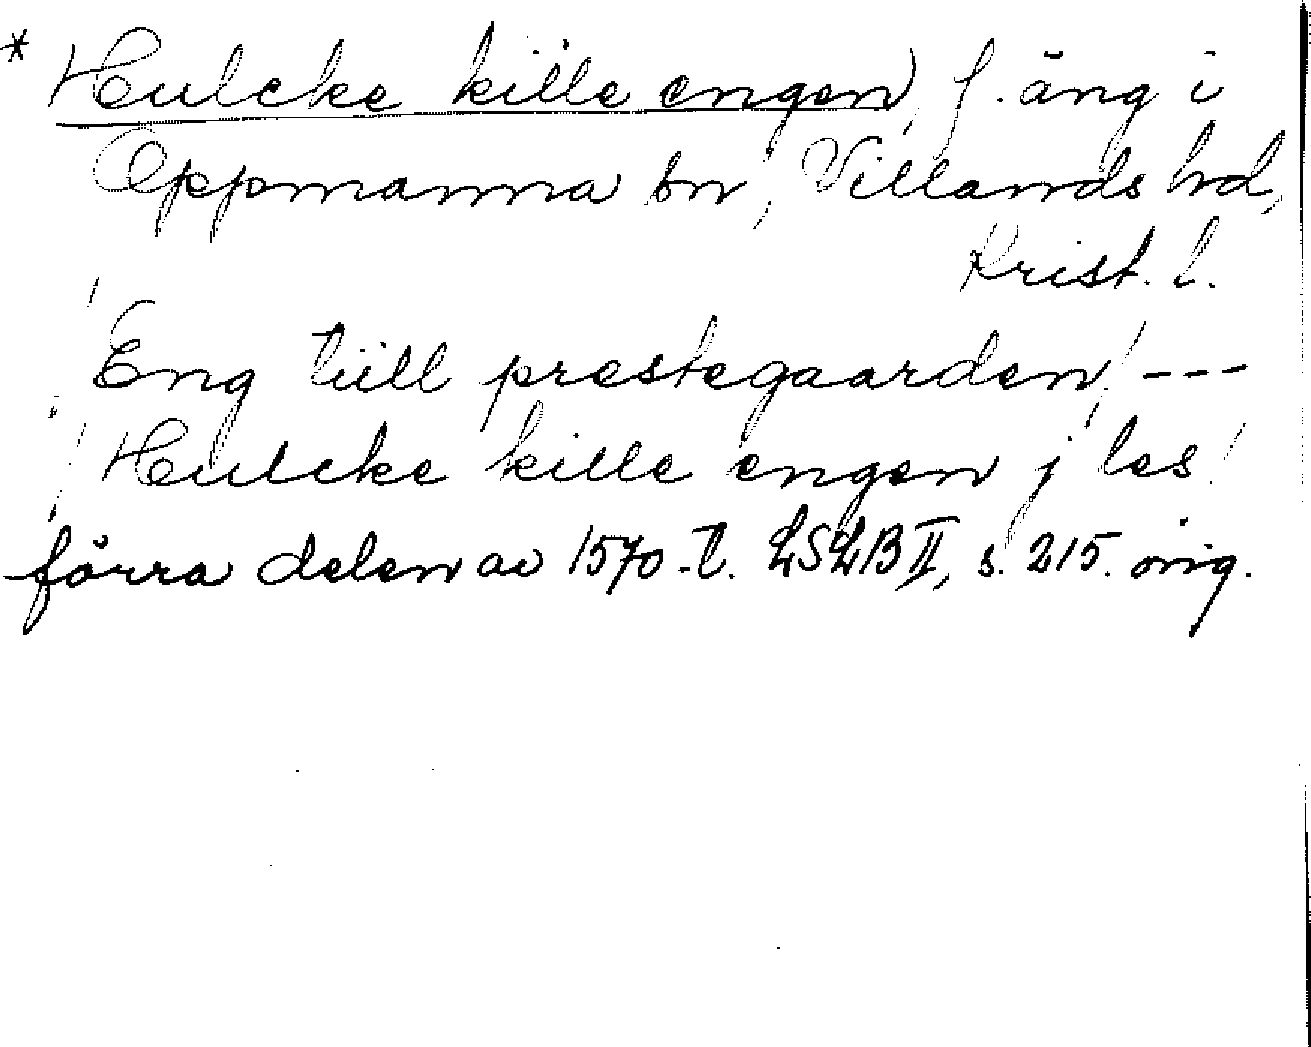 * Hulcke kille engen, f. äng i
Oppmanna sn, Villands hd,
Krist. l.
Eng till prestegaarden, ---
Hulcke kille engen j les
förra delen av 1570-t. LSLB II, s. 215. orig.